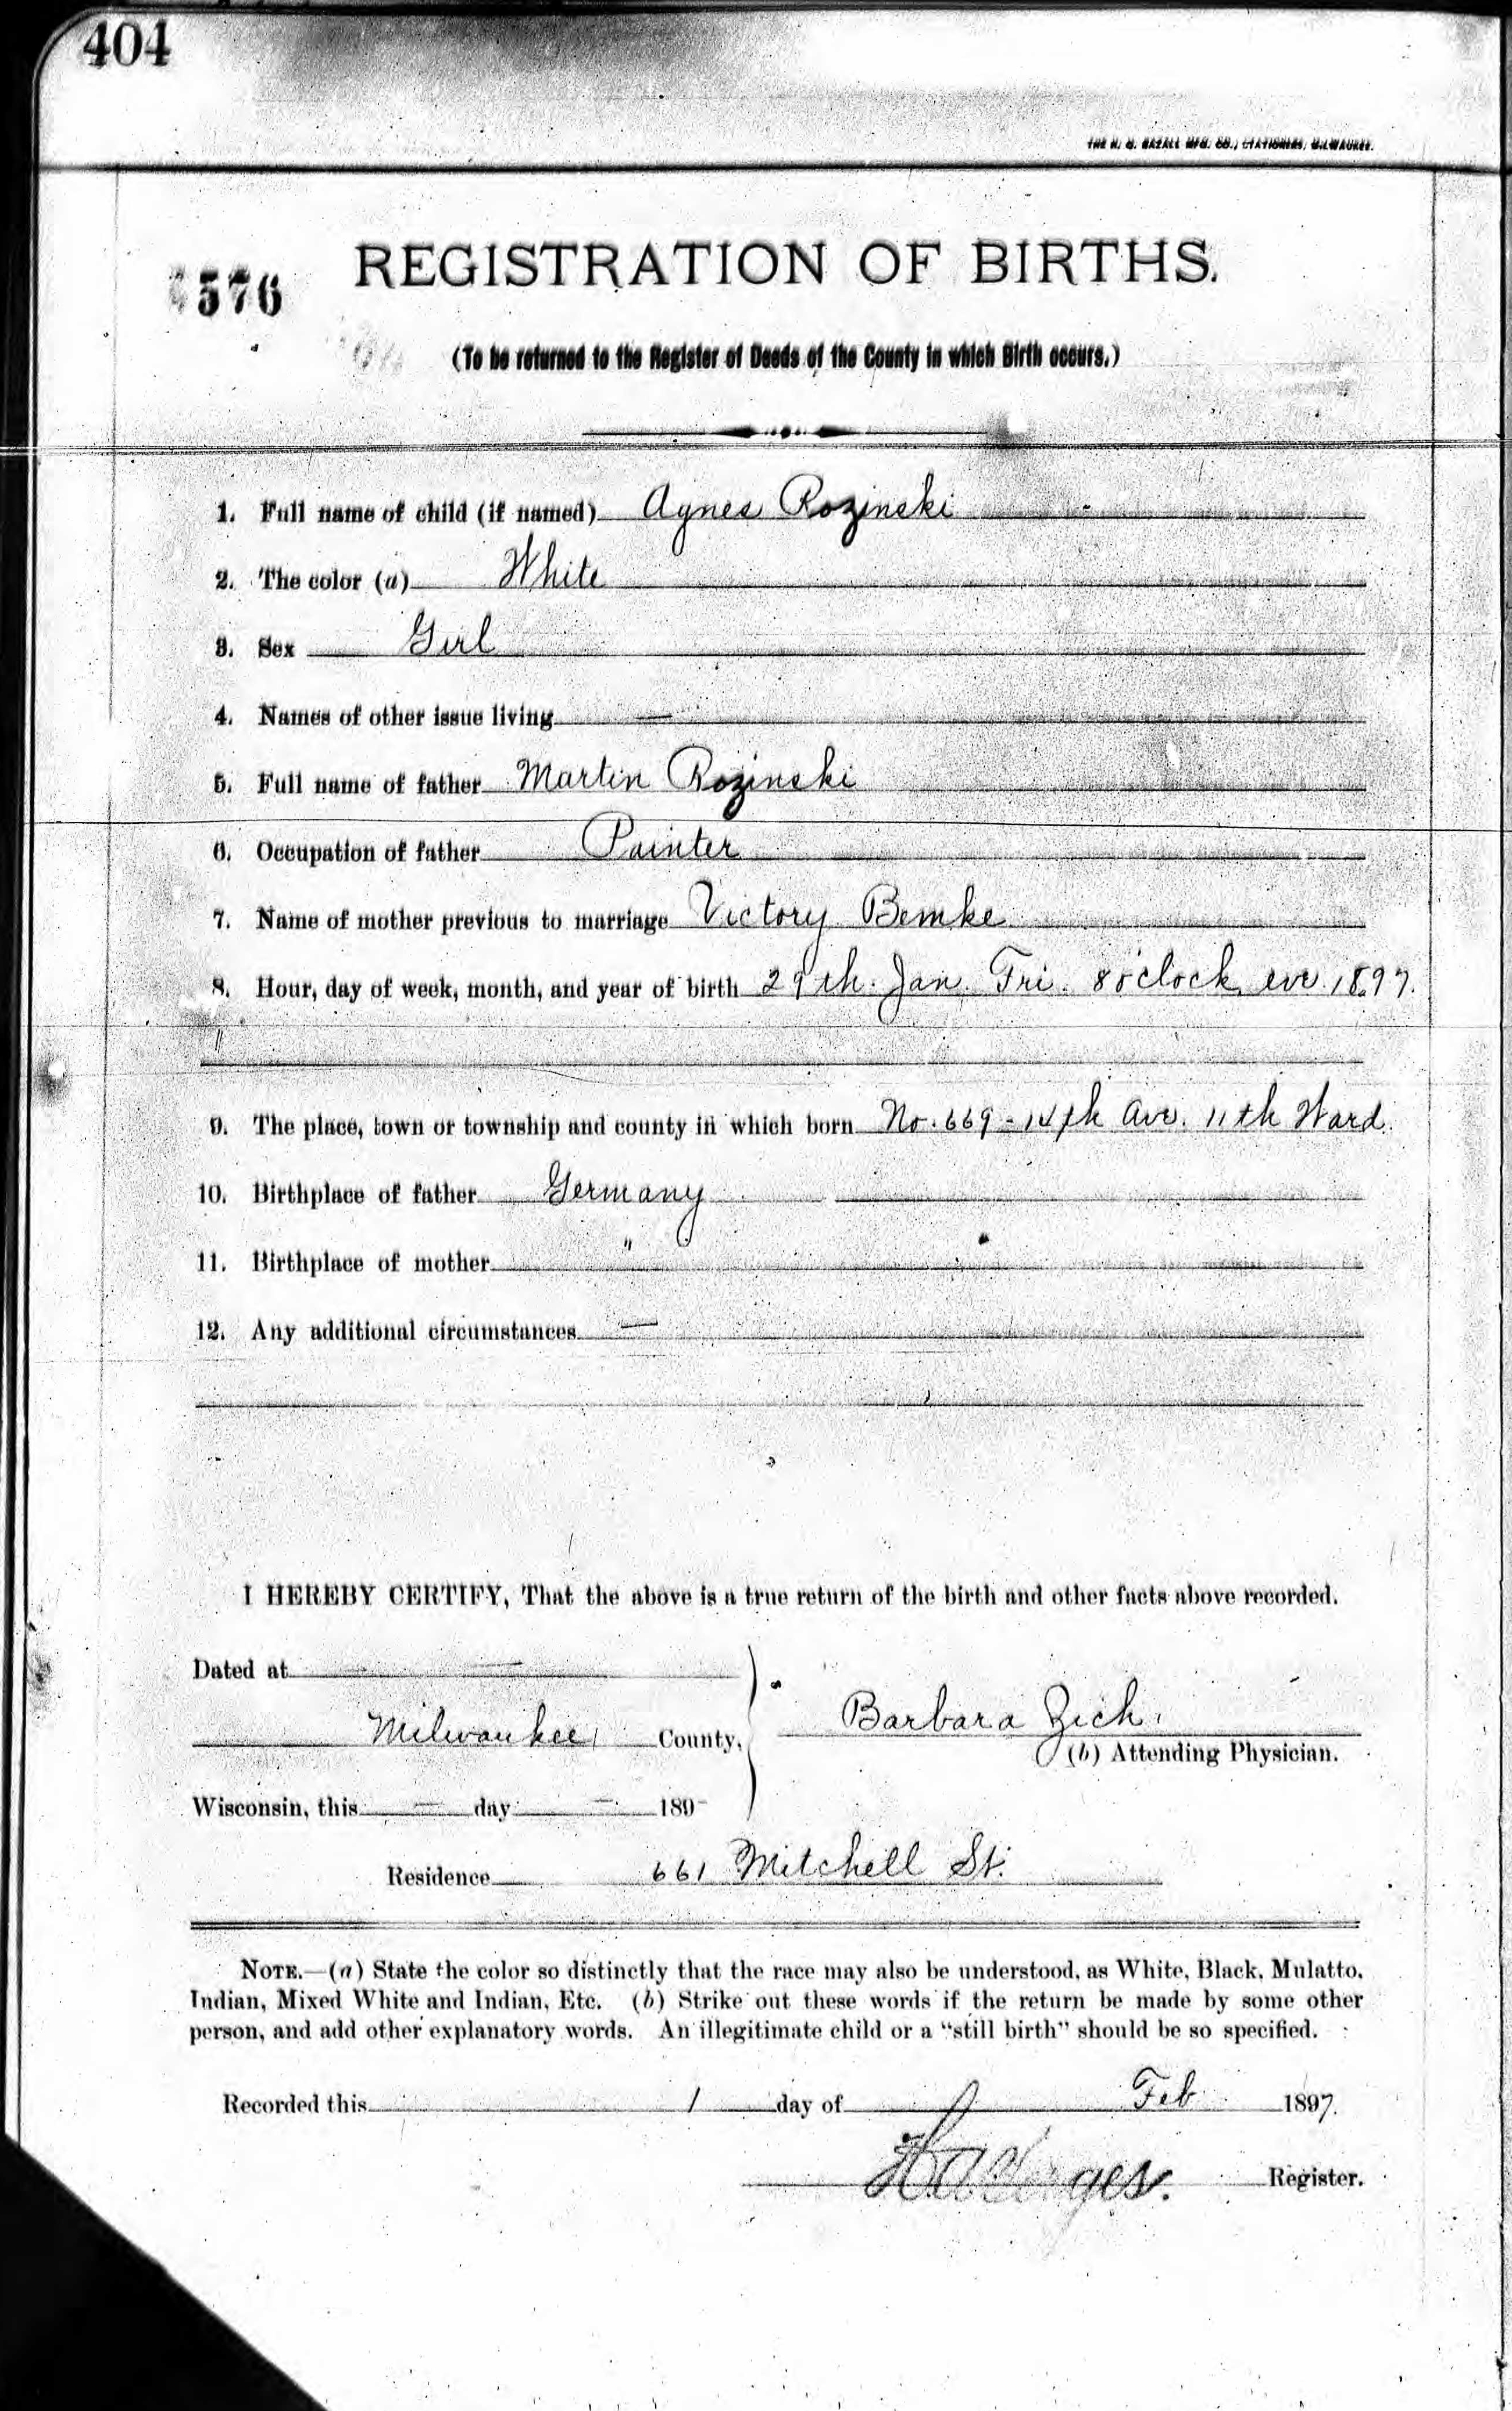 404
THE H. G. RAZALL MFG. CO., STATIONERS, MILWAUKEE.
576
REGISTRATION OF BIRTHS.
(To be returned to the Register of Deeds of the County in which Birth occurs.)
1. Full name of child (if named) Agnes Rozinski
2. The color (a) White
3. Sex Girl
4. Names of other issue living —
5. Full name of father Martin Rozinski
6. Occupation of father Painter
7. Name of mother previous to marriage Victory Bemke
8. Hour, day of week, month, and year of birth 29th. Jan. Fri. 8 o'clock eve. 1897.
"
9. The place, town or township and county in which born No. 669 - 14th Ave. 11th Ward.
10. Birthplace of father Germany
11. Birthplace of mother "
12. Any additional circumstances —
I HEREBY CERTIFY, That the above is a true return of the birth and other facts above recorded.
Dated at —
Milwaukee County,
Barbara Zich.
(b) Attending Physician.
Wisconsin, this — day — 189-
Residence 661 Mitchell St.
NOTE.—(a) State the color so distinctly that the race may also be understood, as White, Black, Mulatto,
Indian, Mixed White and Indian, Etc. (b) Strike out these words if the return be made by some other
person, and add other explanatory words. An illegitimate child or a "still birth" should be so specified.
Recorded this 1 day of Feb 1897.
Register.